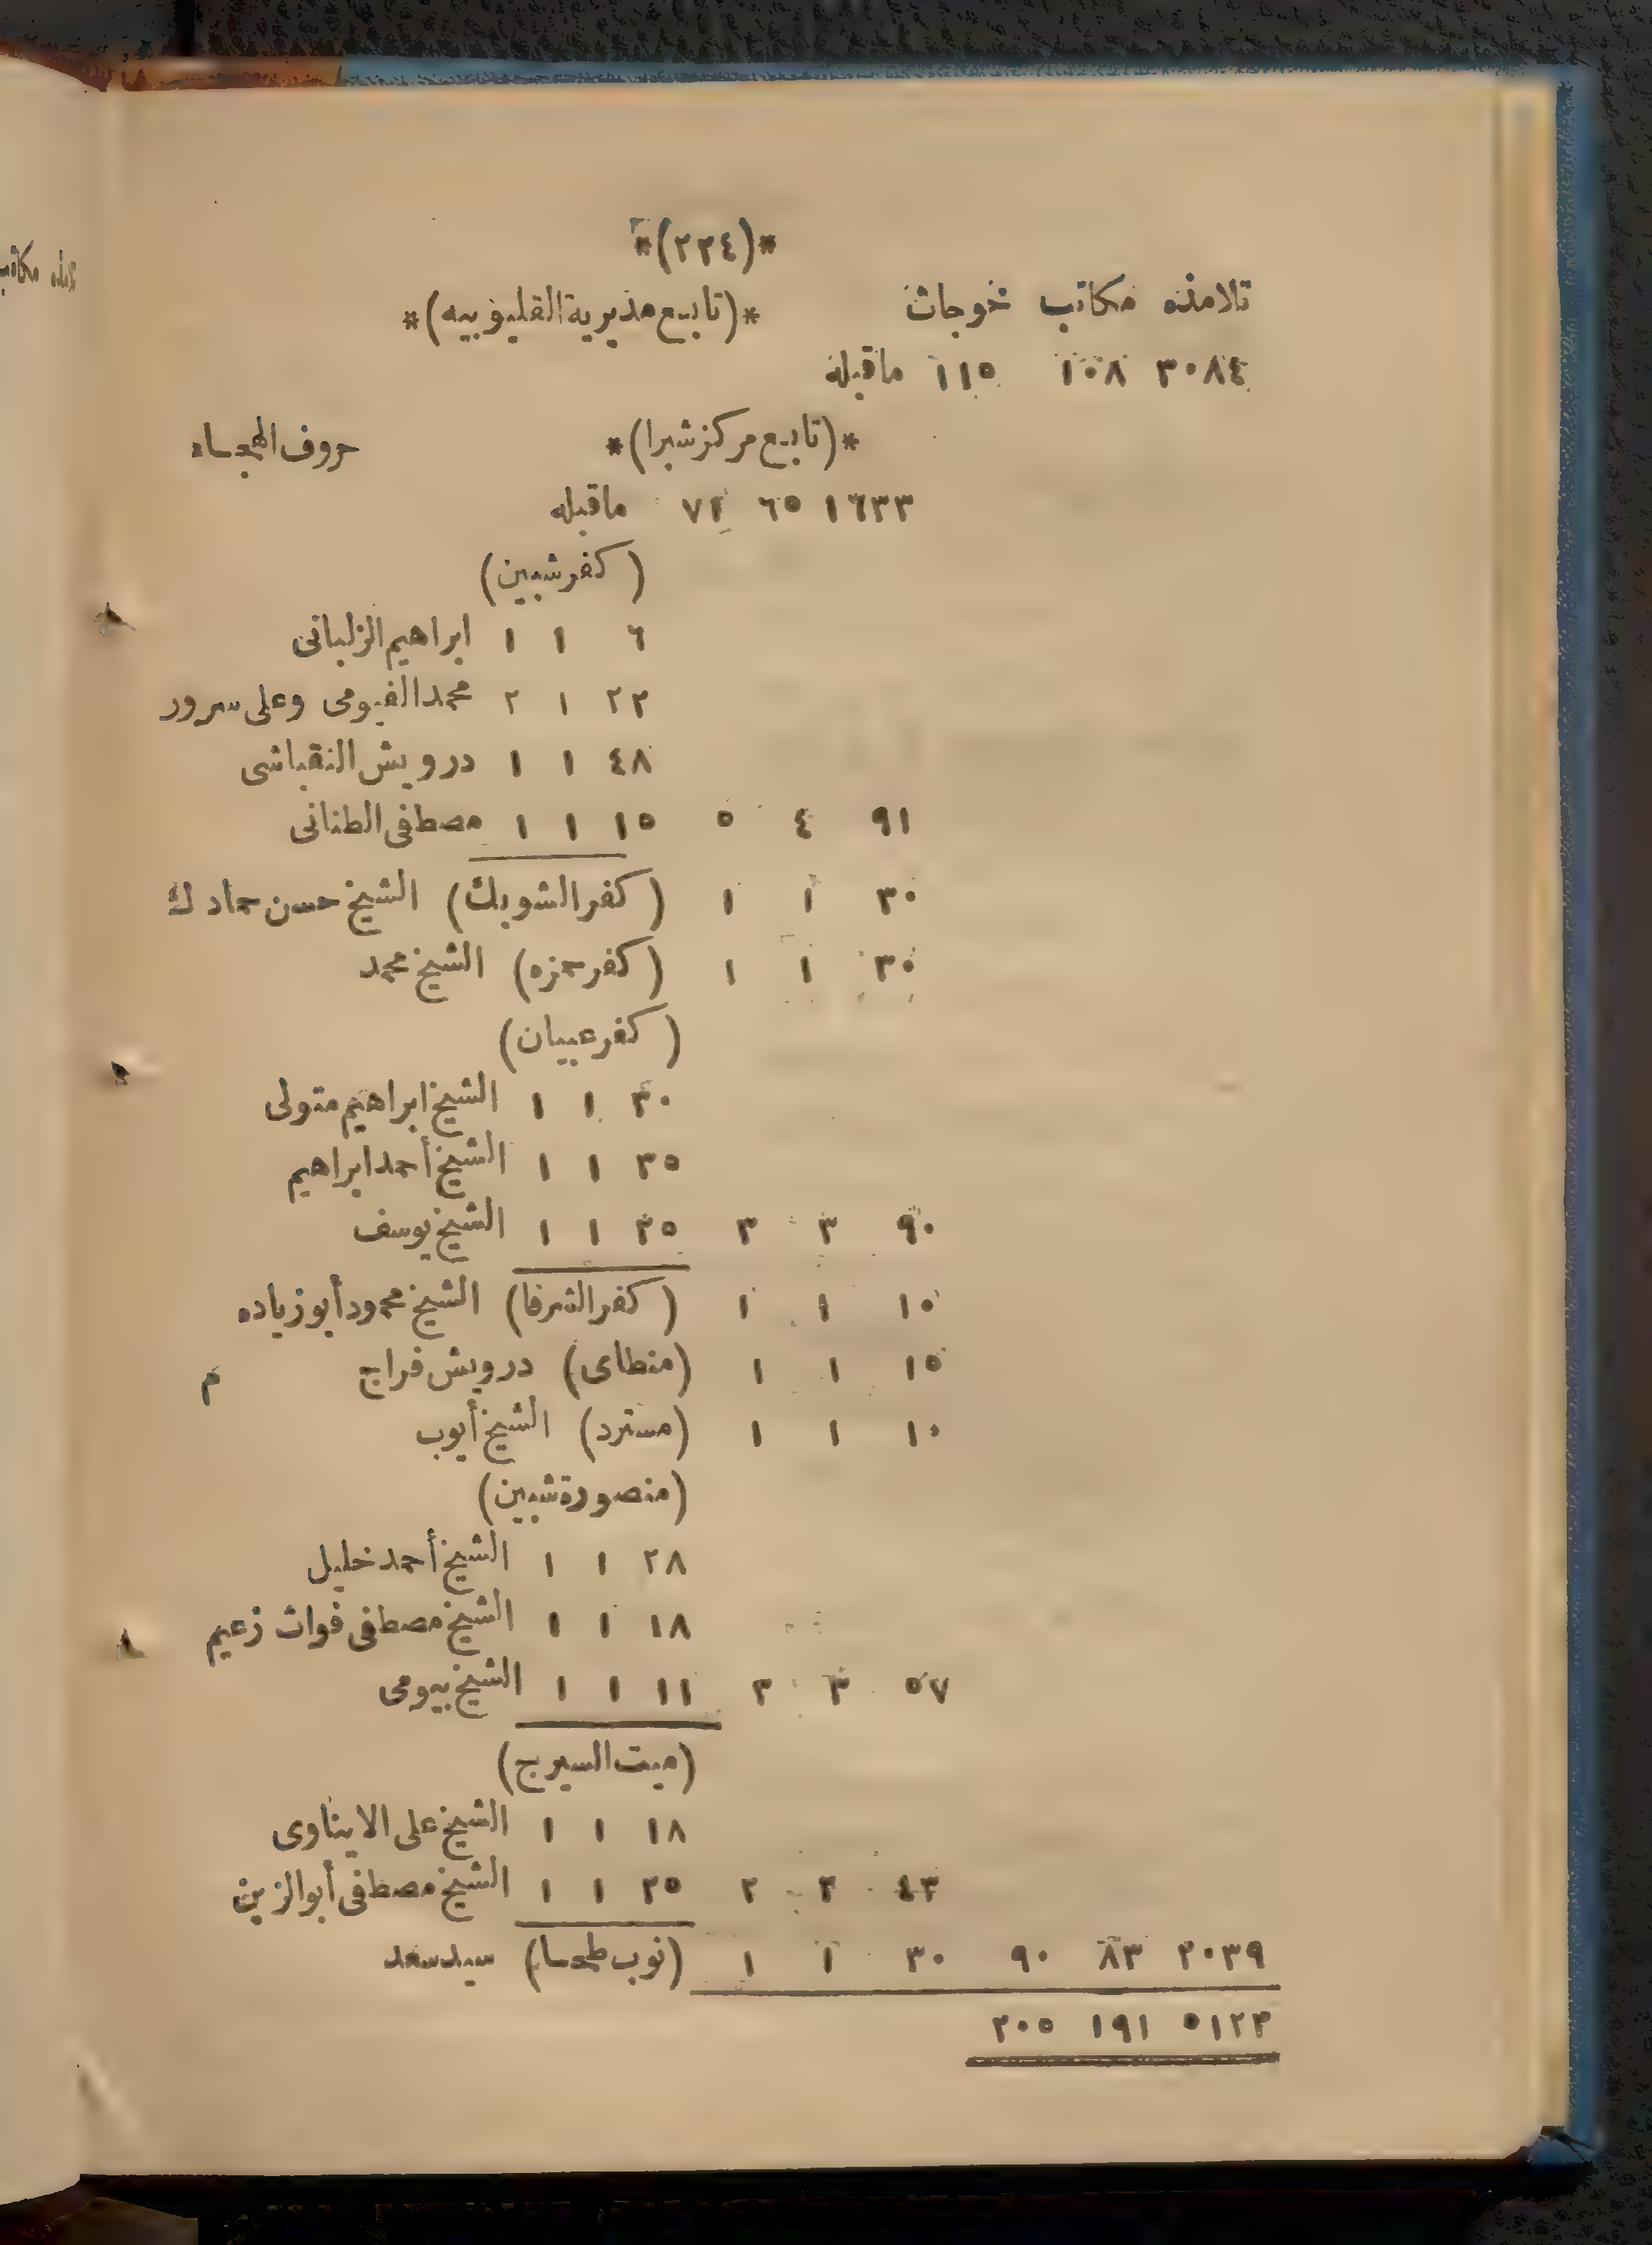 *(٢٢٤)*
تلامذه مكاتب خوجات *(تابع مديرية القليوبيه)*
٣٠٨٤ ١٠٨ ١١٥ ماقبله
*(تابع مركز شبرا)* حروف الهجاء
١٦٣٣ ٦٥ ٧١ ماقبله
(كفر شبين)
٦ ١ ١ ابراهيم الزلبانى
٢٢ ١ ٢ محمد الفيومى وعلى سرور
٤٨ ١ ١ درويش النقباشى
٩١ ٤ ٥ ١٥ ١ ١ مصطفى الطنانى
٣٠ ١ ١ (كفر الشوبك) الشيخ حسن حماد ك
٣٠ ١ ١ (كفر حمزه) الشيخ محمد
(كفر عبيان)
٣٠ ١ ١ الشيخ ابراهيم متولى
٣٥ ١ ١ الشيخ أحمد ابراهيم
٩٠ ٣ ٣ ٢٥ ١ ١ الشيخ يوسف
١٠ ١ ١ (كفر الشرفا) الشيخ محمود أبو زياده
١٥ ١ ١ (منطاى) درويش فراج م
١٠ ١ ١ (مسترد) الشيخ أيوب
(منصورة شبين)
٢٨ ١ ١ الشيخ أحمد خليل
١٨ ١ ١ الشيخ مصطفى فوات زعيم
٥٧ ٣ ٣ ١١ ١ ١ الشيخ بيومى
(ميت السيرج)
١٨ ١ ١ الشيخ على الابناوى
٤٣ ٢ ٢ ٢٥ ١ ١ الشيخ مصطفى أبو الزين
٢٠٣٩ ٨٣ ٩٠ ٣٠ ١ ١ (نوب طحا) سيد سعد
٥١٢٣ ١٩١ ٢٠٥